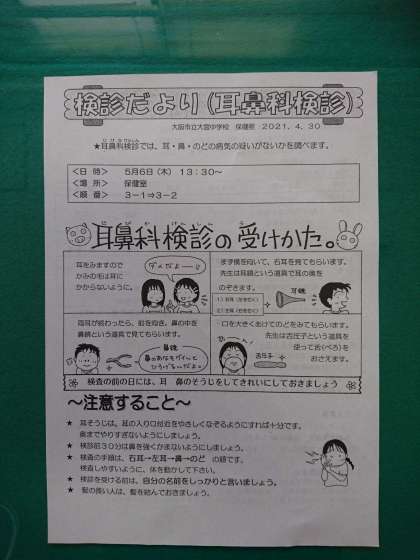 検診だより(耳鼻科検診)
大阪市立大宮中学校 保健室 2021.4.30
★耳鼻科検診では、耳・鼻・のどの病気の疑いがないかを調べます。
<日 時> 5月6日(木) 13:30~
<場 所> 保健室
<順 番> 3-1⇒3-2
耳鼻科検診の受けかた。
耳をみますので
かみの毛は耳に
かからないように。
ダメだよ
まず横を向いて、右耳を見てもらいます。
先生は耳鏡という道具で耳の奥を
のぞきます。
耳鏡
両耳が終わったら、前を向き、鼻の中を
鼻鏡という道具で見てもらいます。
鼻鏡
鼻のあなをグイ~んと
ひろげるんだよ。
口を大きくあけてのどをみてもらいます。
先生は舌圧子という道具を
使って舌(べろ)を
おさえます。
検査の前の日には、耳 鼻のそうじをしてきれいにしておきましょう
~注意すること~
★ 耳そうじは、耳の入り口付近をやさしくなぞるようにすれば十分です。
奥までやりすぎないようにしましょう。
★ 検診前30分は鼻を強くかまないようにしましょう。
★ 検査の手順は、右耳→左耳→鼻→のど の順です。
検査しやすいように、体を動かして下さい。
★ 検診を受ける前は、自分の名前をしっかりと言いましょう。
★ 髪の長い人は、髪を結んでおきましょう。